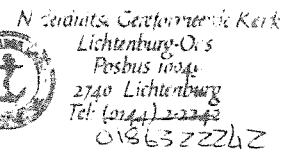 Gereformeerde Kerk
Lichtenburg-Oos
Posbus
2740 Lichtenburg
Tel: (0144) 22242
0186322242